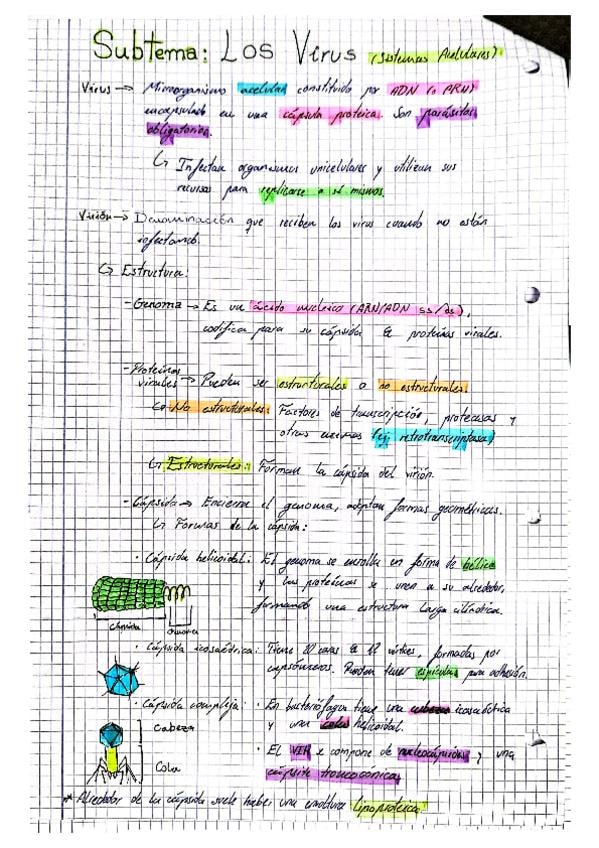 Subtema: Los Virus (Sistemas Acelulares)
Virus → Microorganismo acelular constituido por ADN (o ARN)
encapsulado en una cápsula proteica. Son parásitos
obligatorios.
↳ Infectan organismos unicelulares y utilizan sus
recursos para replicarse a sí mismos.
Virión → Denominación que reciben los virus cuando no están
infectando.
↳ Estructura:
- Genoma → Es un ácido nucleico (ARN/ADN ss/ds),
codifica para su cápsida & proteínas virales.
- Proteínas
virales → Pueden ser estructurales o no estructurales.
↳ No estructurales: Factores de transcripción, proteasas y
otras enzimas (ej retrotranscriptasa)
↳ Estructurales: Forman la cápsida del virión.
- Cápsida → Encierra el genoma, adoptan formas geométricas.
↳ Formas de la cápsida:
· Cápsida helicoidal: El genoma se enrolla en forma de hélice
y las proteínas se unen a su alrededor,
formando una estructura larga cilíndrica.
Cápsida
Genoma
· Cápsida icosaédrica: Tiene 20 caras & 12 vértices, formadas por
capsómeros. Pueden tener espículas para adhesión.
· Cápsida compleja: · En bacteriófagos tiene una cabeza icosaédrica
y una cola helicoidal.
Cabeza
Cola
· El VIH se compone de nucleocápsides y una
cápside troncocónica,
* Alrededor de la cápsida suele haber una envoltura lipoproteica.